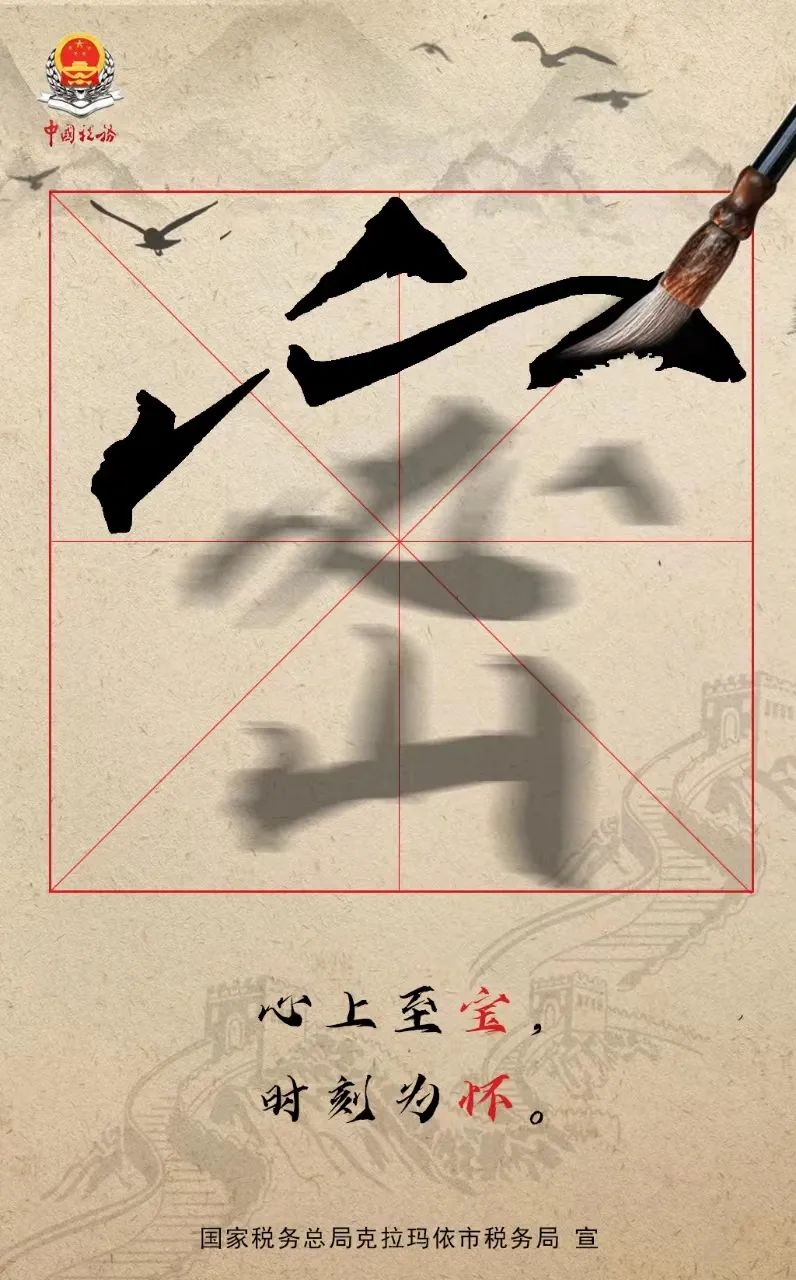 中國税务
密
心上至宝，
时刻为怀。
国家税务总局克拉玛依市税务局 宣